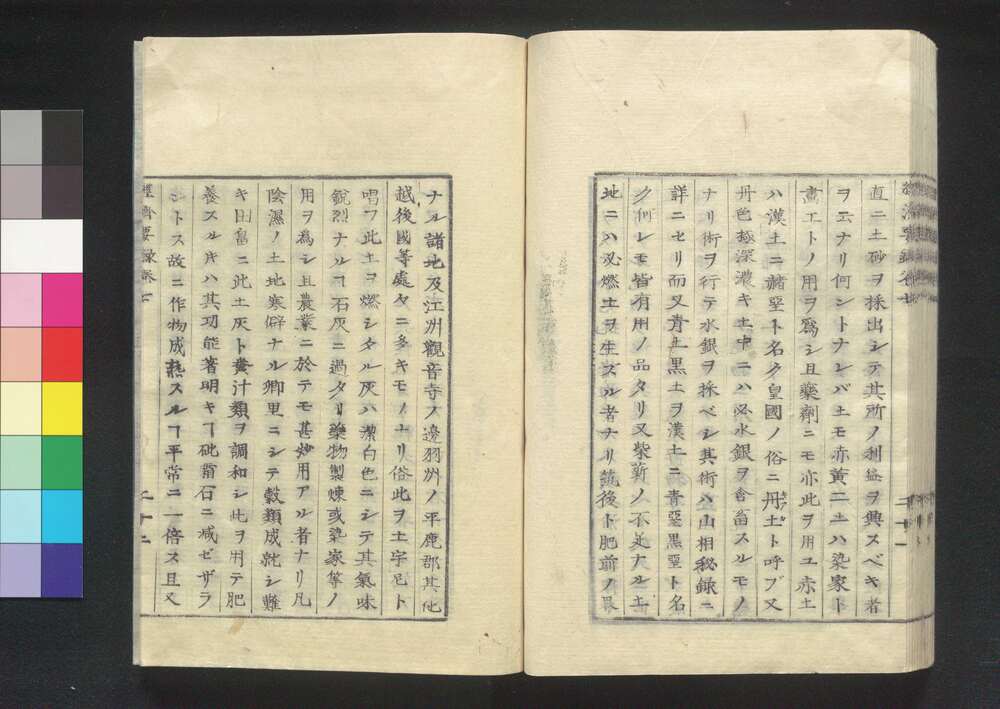 直ニ土砂ヲ採出シテ其所ノ利益ヲ興スベキ者
ヲ云ナリ何ントナレバ土モ亦黄土ハ染家ト
畫工トノ用ヲ爲シ且藥劑ニモ亦此ヲ用ユ赤土
ハ漢土ニ赭堊ト名ク皇國ノ俗ニ丹土ト呼ブ又
丹色極深濃キ土中ニハ必水銀ヲ含畜スルモノ
ナリ術ヲ行テ水銀ヲ採ベシ其術ハ山相秘録ニ
詳ニセリ而又青土黒土ヲ漢土ニ青堊黒堊ト名
ク何レモ皆有用ノ品タリ又柴薪ノ不足ナル土
地ニハ必燃土ヲ生ズル者ナリ筑後ト肥前ノ界
ナル諸地及江州觀音寺ノ邊羽州ノ平鹿郡其他
越後國等處々ニ多キモノナリ俗此ヲ土宇尼ト
唱フ此土ヲ燃シタル灰ハ潔白色ニシテ其氣味
鋭烈ナルヿ石灰ニ過タリ藥物製煉或染家等ノ
用ヲ爲シ且農業ニ於テモ甚妙用アル者ナリ凡
陰濕ノ土地寒僻ナル郷里ニシテ穀類成就シ難
キ田畠ニ此土灰ト糞汁類ヲ調和シ此ヲ用テ肥
養スルキハ其功能著明キヿ砒礵石ニ減ゼザラ
ントス故ニ作物成熟スルヿ平常ニ一倍ス且又
經濟要録卷七
二十二